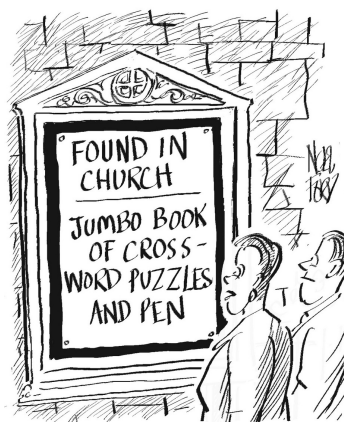 FOUND IN
CHURCH
JUMBO BOOK
OF CROSS-
WORD PUZZLES
AND PEN
NOEL
FORD